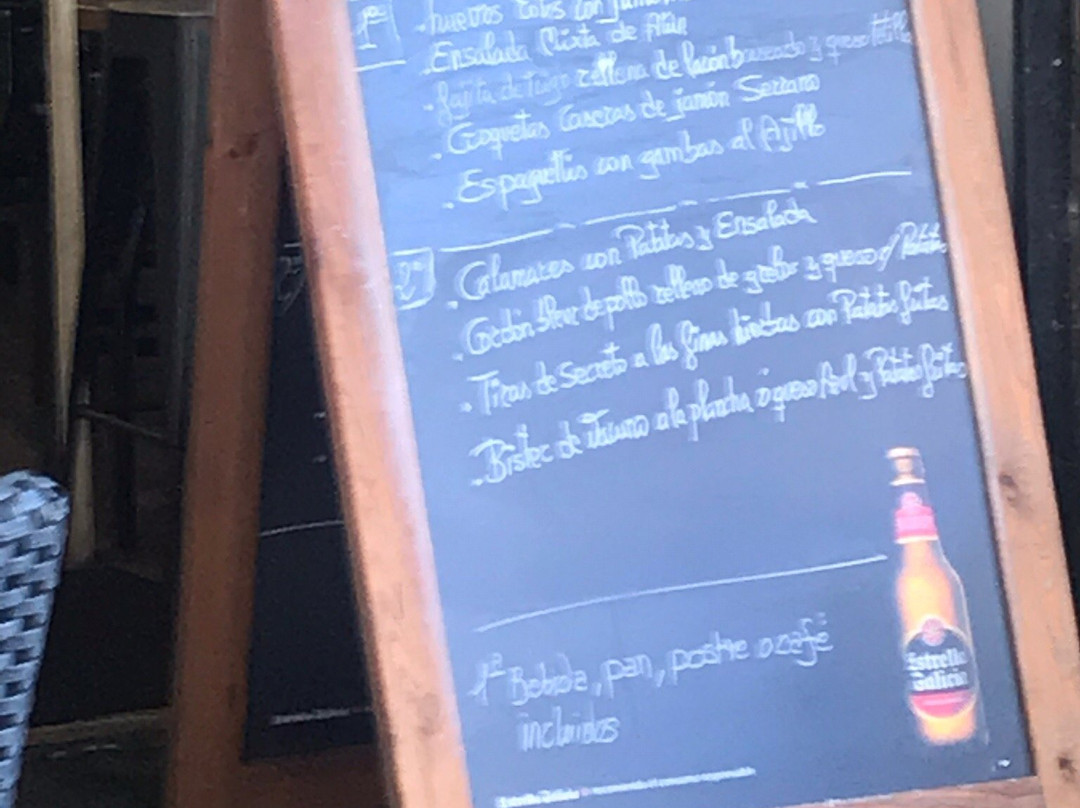 1º
- huevos rotos con jamón
- Ensalada Mixta de Atún
- fajita de trigo rellena de lacón braseado y queso
- Croquetas Caseras de jamón Serrano
- Espaguettis con gambas al Ajillo
2º
- Calamares con Patatas y Ensalada
- Cordón Bleu de pollo relleno de grelos y queso c/ Patatas
- Tiras de Secreto a las finas hierbas con Patatas fritas
- Bistec de ternera a la plancha o queso Azul y Patatas fritas
1ª Bebida, pan, postre o café
incluidos
Estrella
Galicia
Estrella Galicia recomienda el consumo responsable